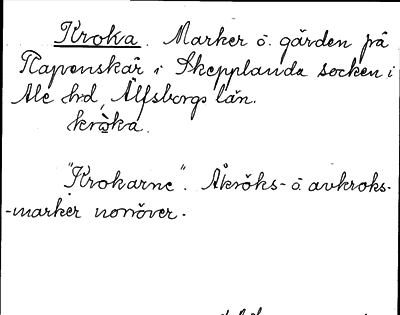 Kroka. Marker ö. gården på
Rapenskår i Skepplanda socken i
Ale hd, Älfsborgs län.
kròka.
"Krokarne". Åkröks- ö avkroks-
-marker norröver.